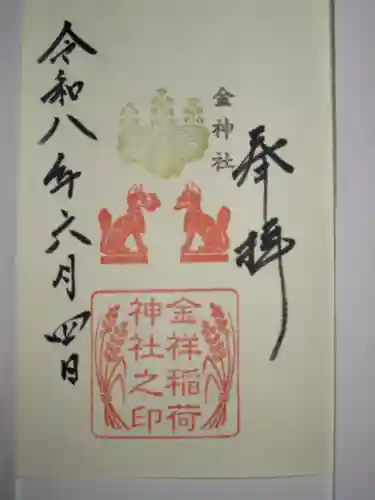 奉拝
金神社
金祥稲荷
神社之印
令和八年六月四日